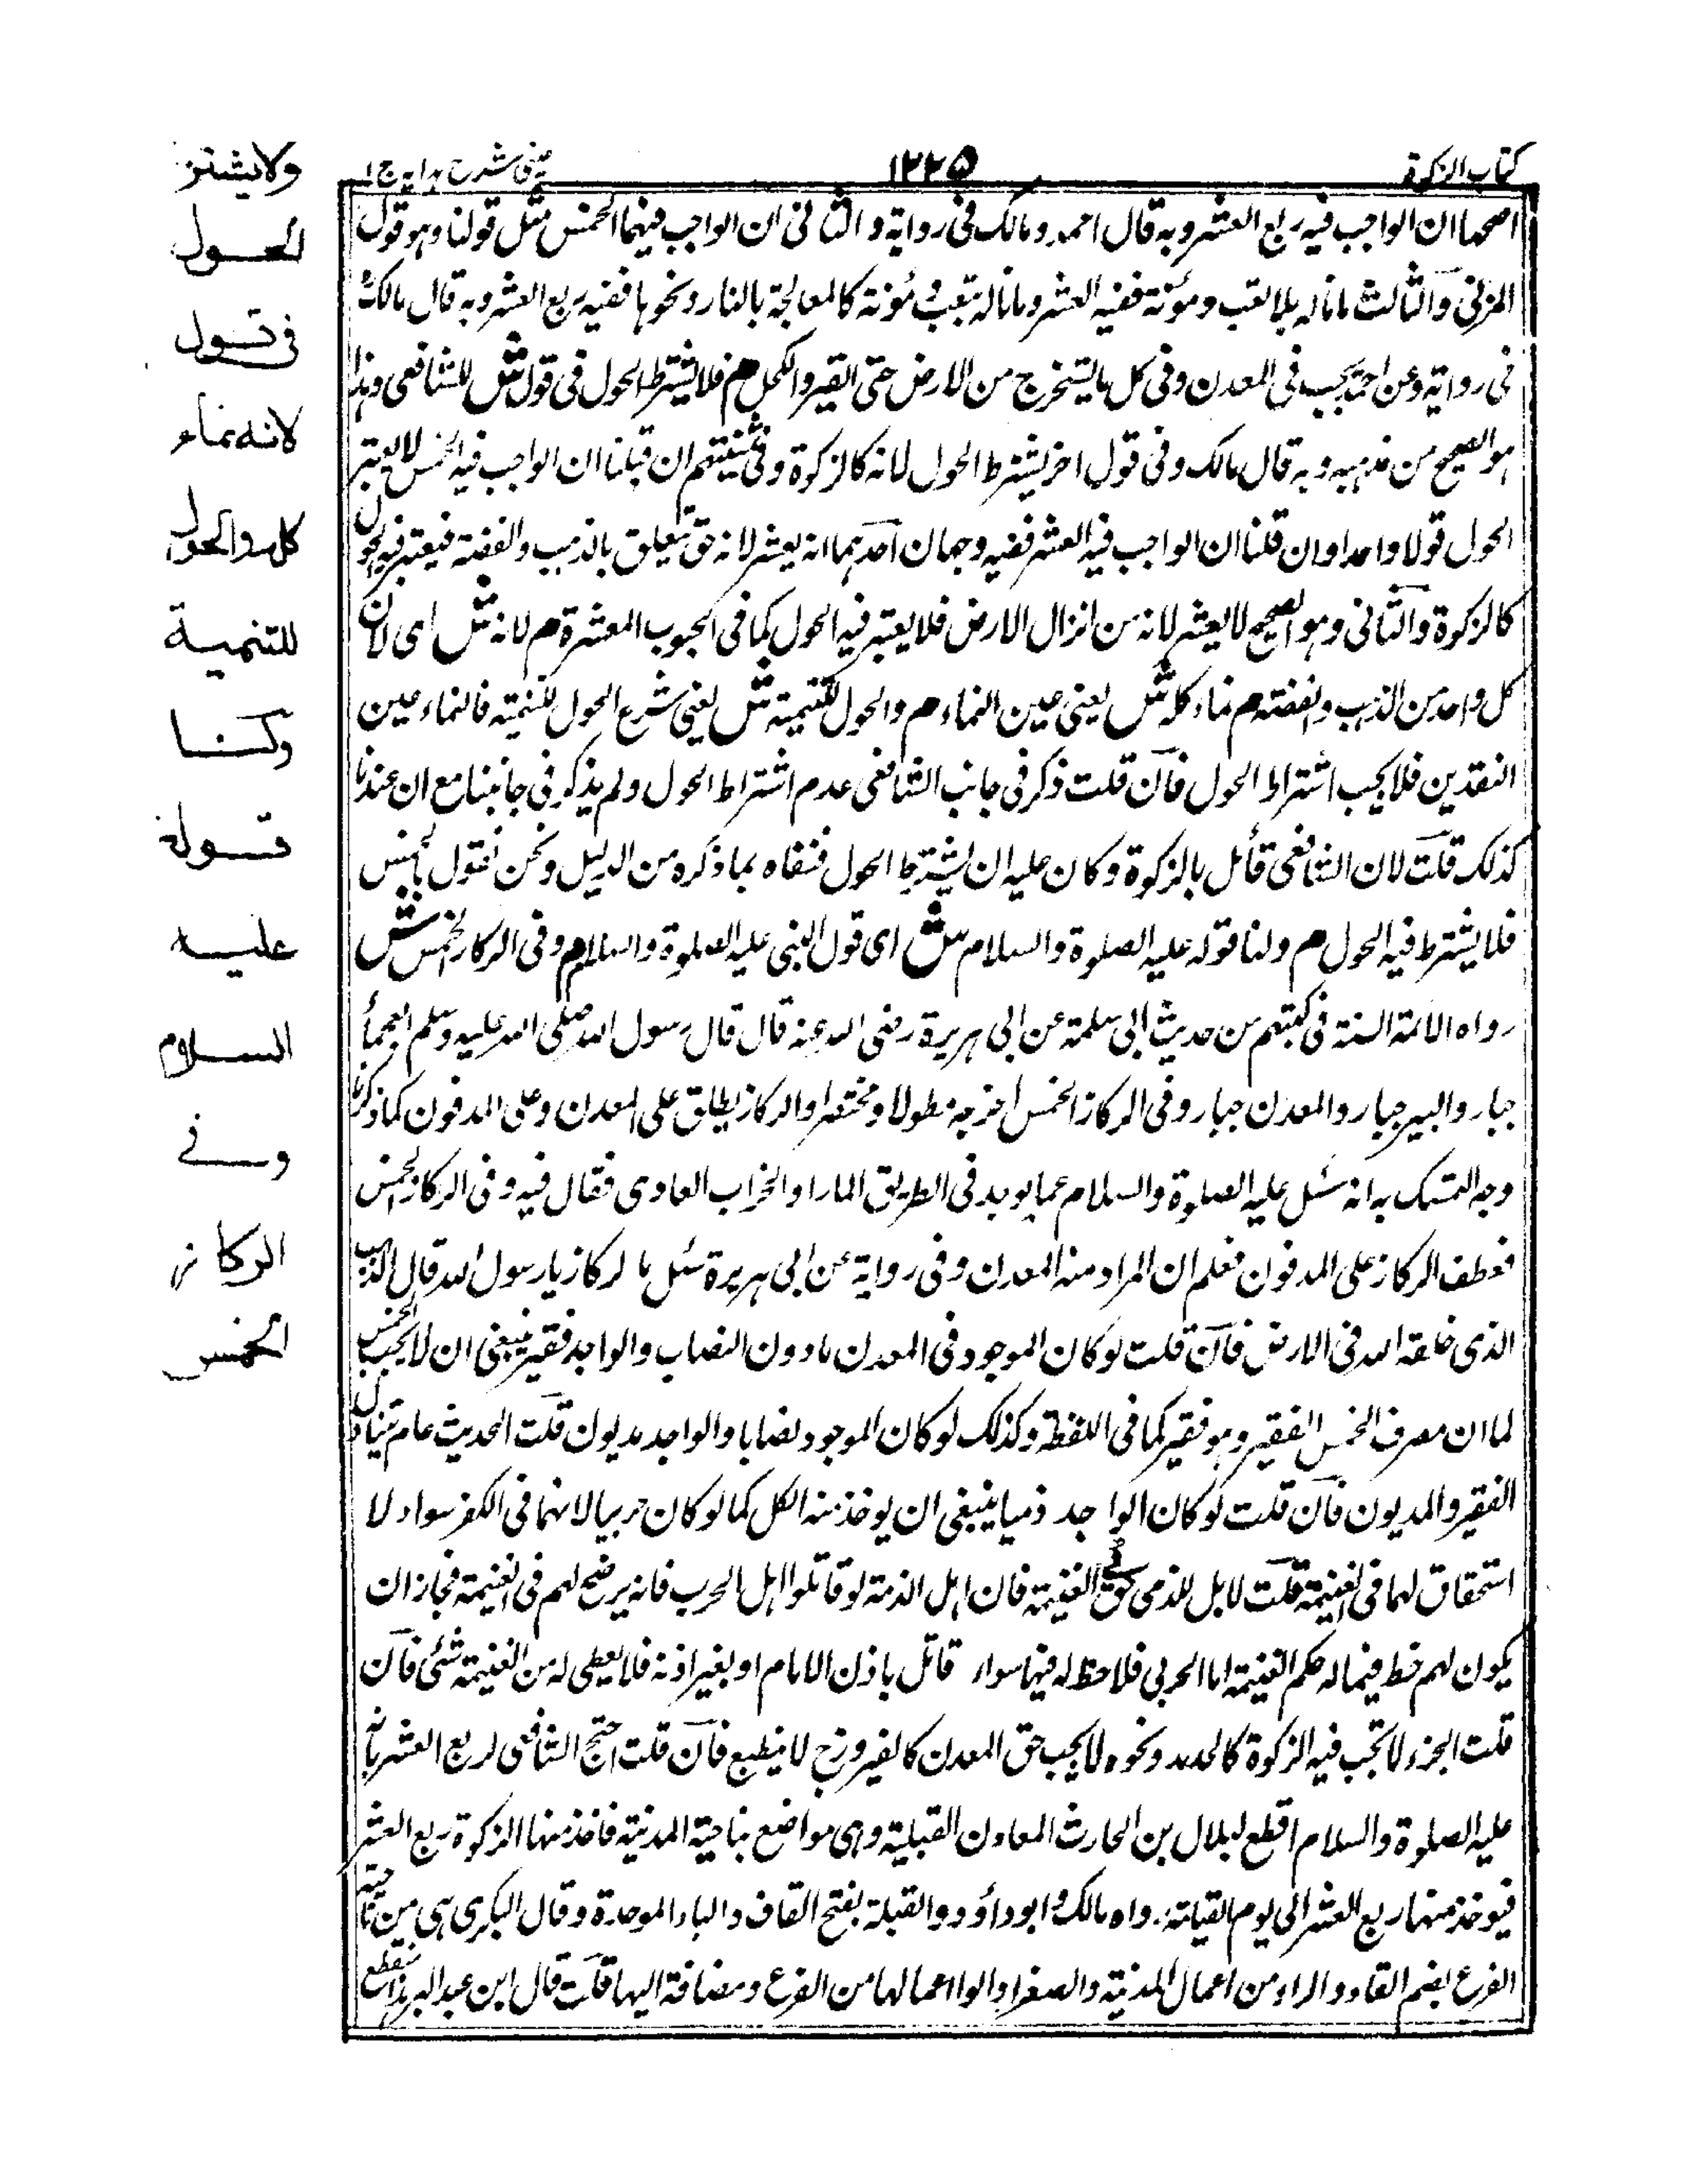 كتاب الزكوة
١٢٢٥
عینی شرح هدایه ج ١
اصحها ان الواجب فيه ربع العشر وبه قال احمد ومالك فى رواية والثانى ان الواجب فيهما الخمس مثل قولنا وهو قول
المزنى والثالث ما ناله بلا تعب ومؤنة ففيه العشر وما ناله بتعب ومؤنة كالمعالجة بالنار ونحوها ففيه ربع العشر وبه قال مالك
فى رواية وعن احمد يجب فى المعدن وفى كل ما يستخرج من الارض حتى القير والكحل م فلا يشترط الحول فى قول ش للشافعى وهذا
هو الصحيح من مذهبه وبه قال مالك وفى قول اخر يشترط الحول لانه كالزكوة وفى تتمتهم ان قلنا ان الواجب فيه الخمس لا يعتبر
الحول قولا واحدا وان قلنا ان الواجب فيه العشر ففيه وجهان احدهما انه يعشر لانه حق يتعلق بالذهب والفضة فيعتبر فيه الحول
كالزكوة والثانى وهو الصحيح لا يعشر لانه من انزال الارض فلا يعتبر فيه الحول كما فى الحبوب المعشرة م لانه ش اى لان
كل واحد من الذهب والفضة م نماء كله ش يعنى عين النماء م والحول للتنمية ش يعنى شرع الحول للتنمية فالنماء عين
النقدين فلا يجب اشتراط الحول فان قلت ذكر فى جانب الشافعى عدم اشتراط الحول ولم يذكر فى جانبنا مع ان عندنا
كذلك قلت لان الشافعى قائل بالزكوة وكان عليه ان يشترط الحول فنفاه بما ذكره من الدليل ونحن نقول بالخمس
فلا يشترط فيه الحول م ولنا قوله عليه الصلوة والسلام ش اى قول النبى عليه الصلوة والسلام م وفى الركاز الخمس ش
رواه الائمة الستة فى كتبهم من حديث ابى سلمة عن ابى هريرة رضى الله عنه قال قال رسول الله صلى الله عليه وسلم العجماء
جبار والبير جبار والمعدن جبار وفى الركاز الخمس اخرجه مطولا ومختصرا والركاز يطلق على المعدن وعلى المدفون كما ذكرنا
وجه التمسك به انه سئل عليه الصلوة والسلام عما يوجد فى الطريق المار او الخراب العادى فقال فيه وفى الركاز الخمس
فعطف الركاز على المدفون فعلم ان المراد منه المعدن وفى رواية عن ابى هريرة سئل ما الركاز يا رسول الله قال الذهب
الذى خلقه الله فى الارض فان قلت لو كان الموجود فى المعدن ما دون النصاب والواجد فقير ينبغى ان لا يجب الخمس
لما ان مصرف الخمس الفقير وهو فقير كما فى اللقطة وكذلك لو كان الموجود نصابا والواجد مديون قلت الحديث عام يتناول
الفقير والمديون فان قلت لو كان الواجد ذميا ينبغى ان يوخذ منه الكل كما لو كان حربيا لانهما فى الكفر سواء لا
استحقاق لهما فى الغنيمة قلت لا بل للذمى حق فى الغنيمة فان اهل الذمة لو قاتلوا اهل الحرب فانه يرضخ لهم فى الغنيمة فجاز ان
يكون لهم حظ فيما له حكم الغنيمة اما الحربى فلا حظ له فيها سواء قاتل باذن الامام او بغير اذنه فلا يعطى له من الغنيمة شئ فان
قلت الجزء لا تجب فيه الزكوة كالحديد ونحوه لا يجب حق المعدن كالفيروزج لا ينطبع فان قلت احتج الشافعى لربع العشر بانه
عليه الصلوة والسلام اقطع لبلال بن الحارث المعادن القبلية وهى مواضع بناحية المدينة فاخذ منها الزكوة ربع العشر
فيوخذ منها ربع العشر الى يوم القيامة رواه مالك وابو داؤد والقبلة بفتح القاف والباء الموحدة وقال البكرى هى من ناحية
الفرع بضم الفاء والراء من اعمال المدينة والصفراء والوا اعمالها من الفرع ومضافة اليها قلت قال ابن عبد البر هذا منقطع
ولا يشترط
الحول
فى قول
لانه نماء
كله والحول
للتنمية
ولنا
قوله
عليه
السلام
وفى
الركاز
الخمس